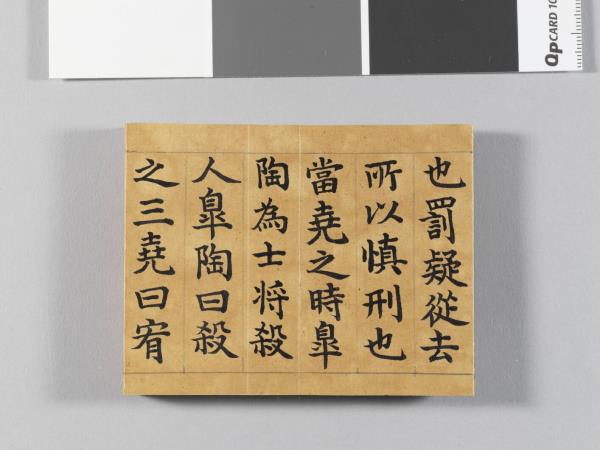 也罰疑從去
所以慎刑也
當堯之時皐
陶為士将殺
人皐陶曰殺
之三堯曰宥
QP CARD 10